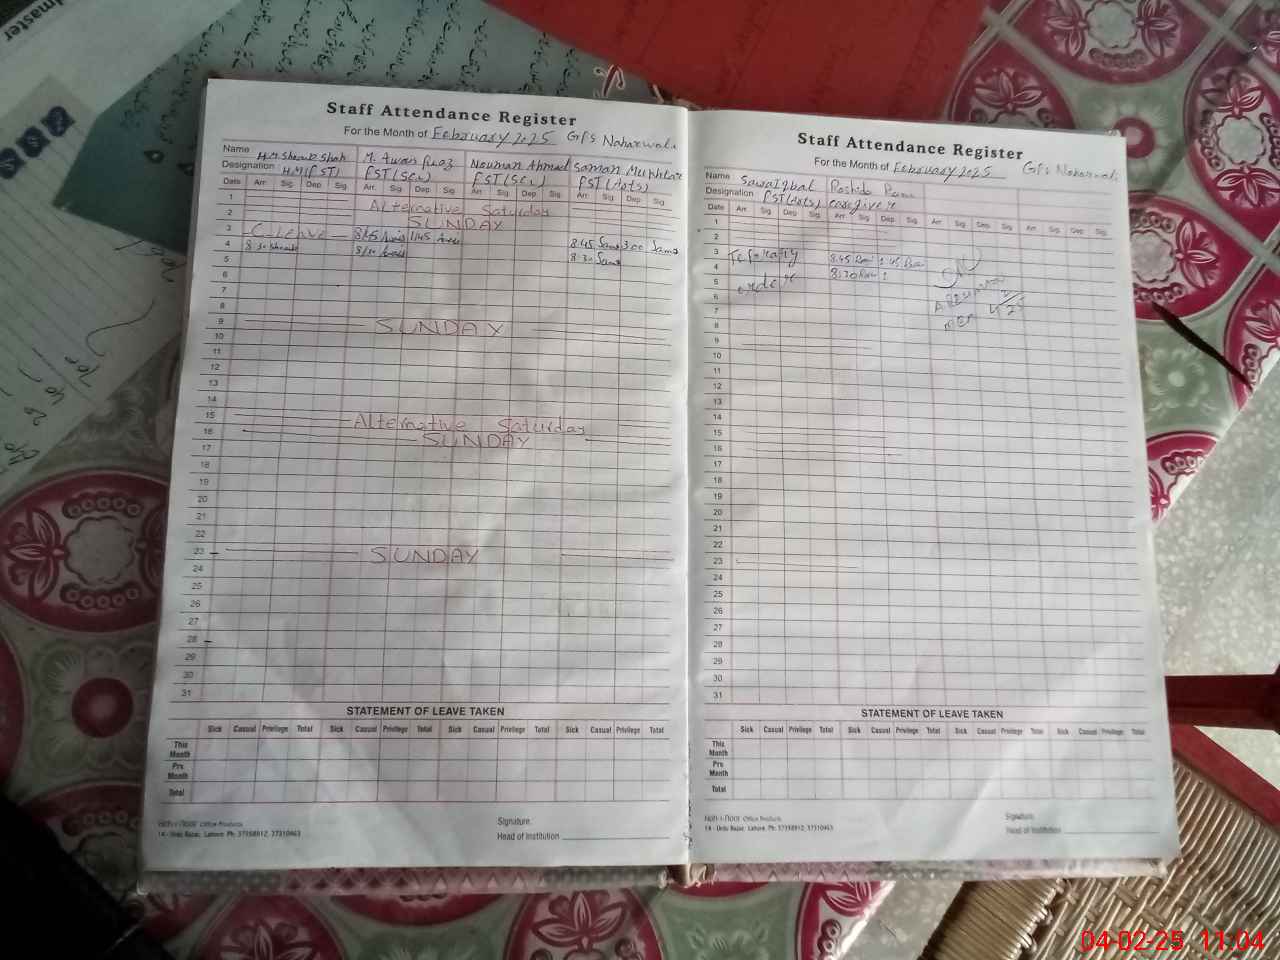 dmaster
Staff Attendance Register
For the Month of February 2025 GPS Naharwali
Name H.M. Shoaib Shah M. Awais Riaz Nouman Ahmed Saman Mukhtar
Designation H.M(PST) PST(Sci) PST(Sci) PST(Arts)
Date Arr Sig Dep Sig Arr. Sig Dep Sig Arr Sig Dep Sig Arr Sig Dep Sig
1 Alternative Saturday
2 SUNDAY
3 C. Leave 8:45 Awais 1:45 Awais 8.45 Sam 3:00 Sam
4 8.30 Shoaib 8:30 Awais 8:30 Sam
5
6
7
8
9 SUNDAY
10
11
12
13
14
15 Alternative Saturday
16 SUNDAY
17
18
19
20
21
22
23 SUNDAY
24
25
26
27
28
29
30
31
STATEMENT OF LEAVE TAKEN
Sick Casual Privilege Total Sick Casual Privilege Total Sick Casual Privilege Total Sick Casual Privilege Total
This Month
Pre Month
Total
Office Products
14 - Urdu Bazar, Lahore Ph: 37358912, 37310463
Signature:
Head of Institution
Staff Attendance Register
For the Month of February 2025 GPS Naharwali
Name Sawa Iqbal Rashida
Designation PST(Arts) caregiver
Date Arr Sig Dep Sig Arr Sig Dep Sig Arr Sig Dep Sig Arr Sig Dep Sig
1
2
3 8.45 1:45
4 8:30
5 order
6
7
8
9
10
11
12
13
14
15
16
17
18
19
20
21
22
23
24
25
26
27
28
29
30
31
STATEMENT OF LEAVE TAKEN
Sick Casual Privilege Total Sick Casual Privilege Total Sick Casual Privilege Total Sick Casual Privilege Total
This Month
Pre Month
Total
Office Products
14 - Urdu Bazar, Lahore Ph: 37358912, 37310463
Signature:
Head of Institution
04-02-25 11:04